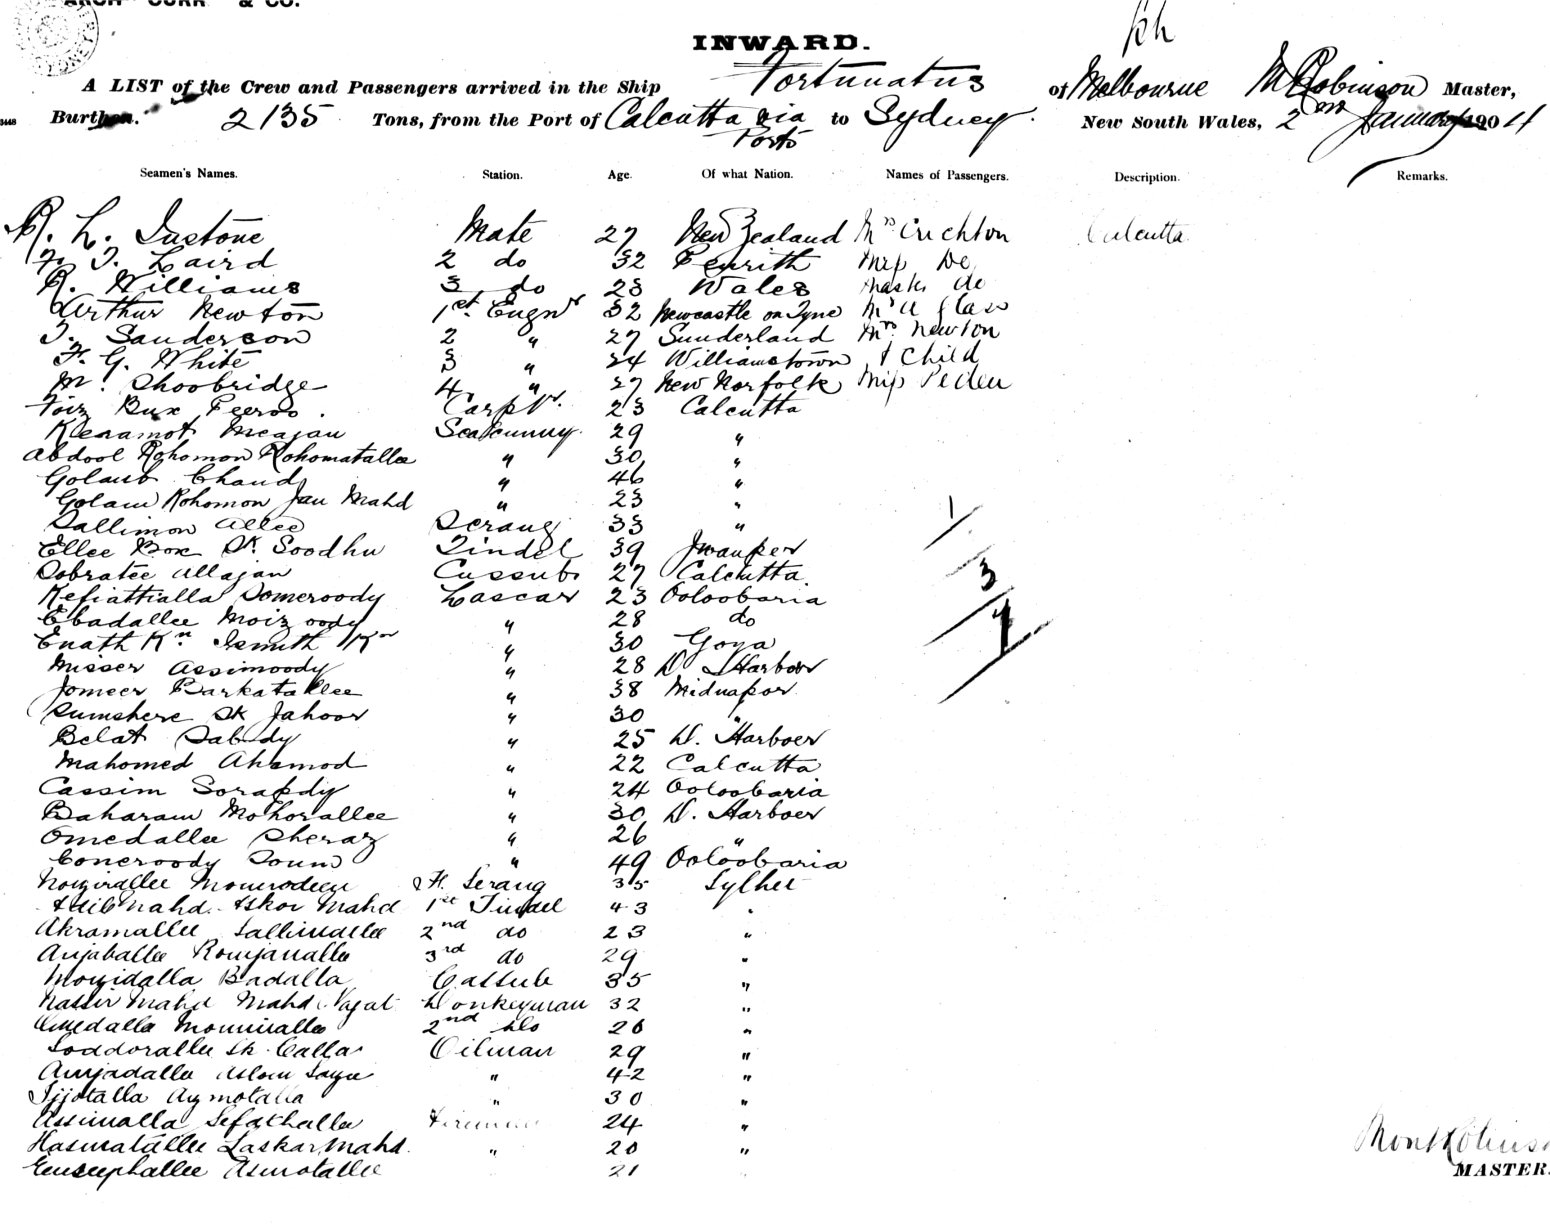 ARCH CURR & CO.
INWARD.
A LIST of the Crew and Passengers arrived in the Ship Fortunatus of Melbourne M Robinson Master,
Burthen. 2135 Tons, from the Port of Calcutta via Ports to Sydney. New South Wales, 2nd January 1904
Seamen's Names. Station. Age. Of what Nation. Names of Passengers. Description. Remarks.
R. L. Instone Mate 27 New Zealand Mrs Crichton Calcutta
Laird 2 do 32 Penrith Miss Do
R. Williams 3 do 23 Wales Mast. do
Arthur Newton 1st Engnr 32 Newcastle on Tyne
T. Sanderson 2 " 27 Sunderland Mrs Newton
F. G. White 3 " 24 Williamstown & Child
M. Shoobridge 4 " 27 New Norfolk Miss Peden
Foiz Bux Feeroo. Carptr. 23 Calcutta
Keramot Meajan Seacunny 29 "
Abdool Rohomon Rohomatallee " 30 "
Golaub Chand " 46 "
Golam Rohomon Jan Mahd " 23 "
Sallimon Allee Serang 33 "
Ellee Box Sk. Soodhu Tindel 39
Sobratee Allajan Cussub 27 Calcutta
Kefiattialla Someroody Lascar 23 Ooloobaria
Ebadallee Moizoody " 28 do
Enath Kn Ismuth Kn " 30 Goya
Misser Assimoody " 28 D. Harboer
Jomeer Barkatallee " 38 Midnapor
Sumshere Sk Jahoor " 30 "
Belat Sabudy " 25 D. Harboer
Mahomed Ahamod " 22 Calcutta
Cassim Sorapdy " 24 Ooloobaria
Baharam Mohorallee " 30 D. Harboer
Omedallee Sheraz " 26 "
Coneroody Soum " 49 Ooloobaria
Nozirallee Serang 35 Sylhet
Mahd. Askor Mahd 1st Tindel 43 "
Akramallee Sallimallee 2nd do 23 "
Anjaballee Romjanallee 3rd do 29 "
Mozidalla Badalla Cassub 35 "
Nassir Mahd Mahd. Donkeyman 32 "
Omedalla 2nd do 26 "
Soddorallee Sk. Calla Oilman 29 "
Amjadallee " 42 "
Ijjotalla Aymotalla " 30 "
Assimalla Sefathalla Fireman 24 "
Hasmatallee Laskar Mahd. " 20 "
Eusuphallee Asmotallee 21
1
3
MASTER.